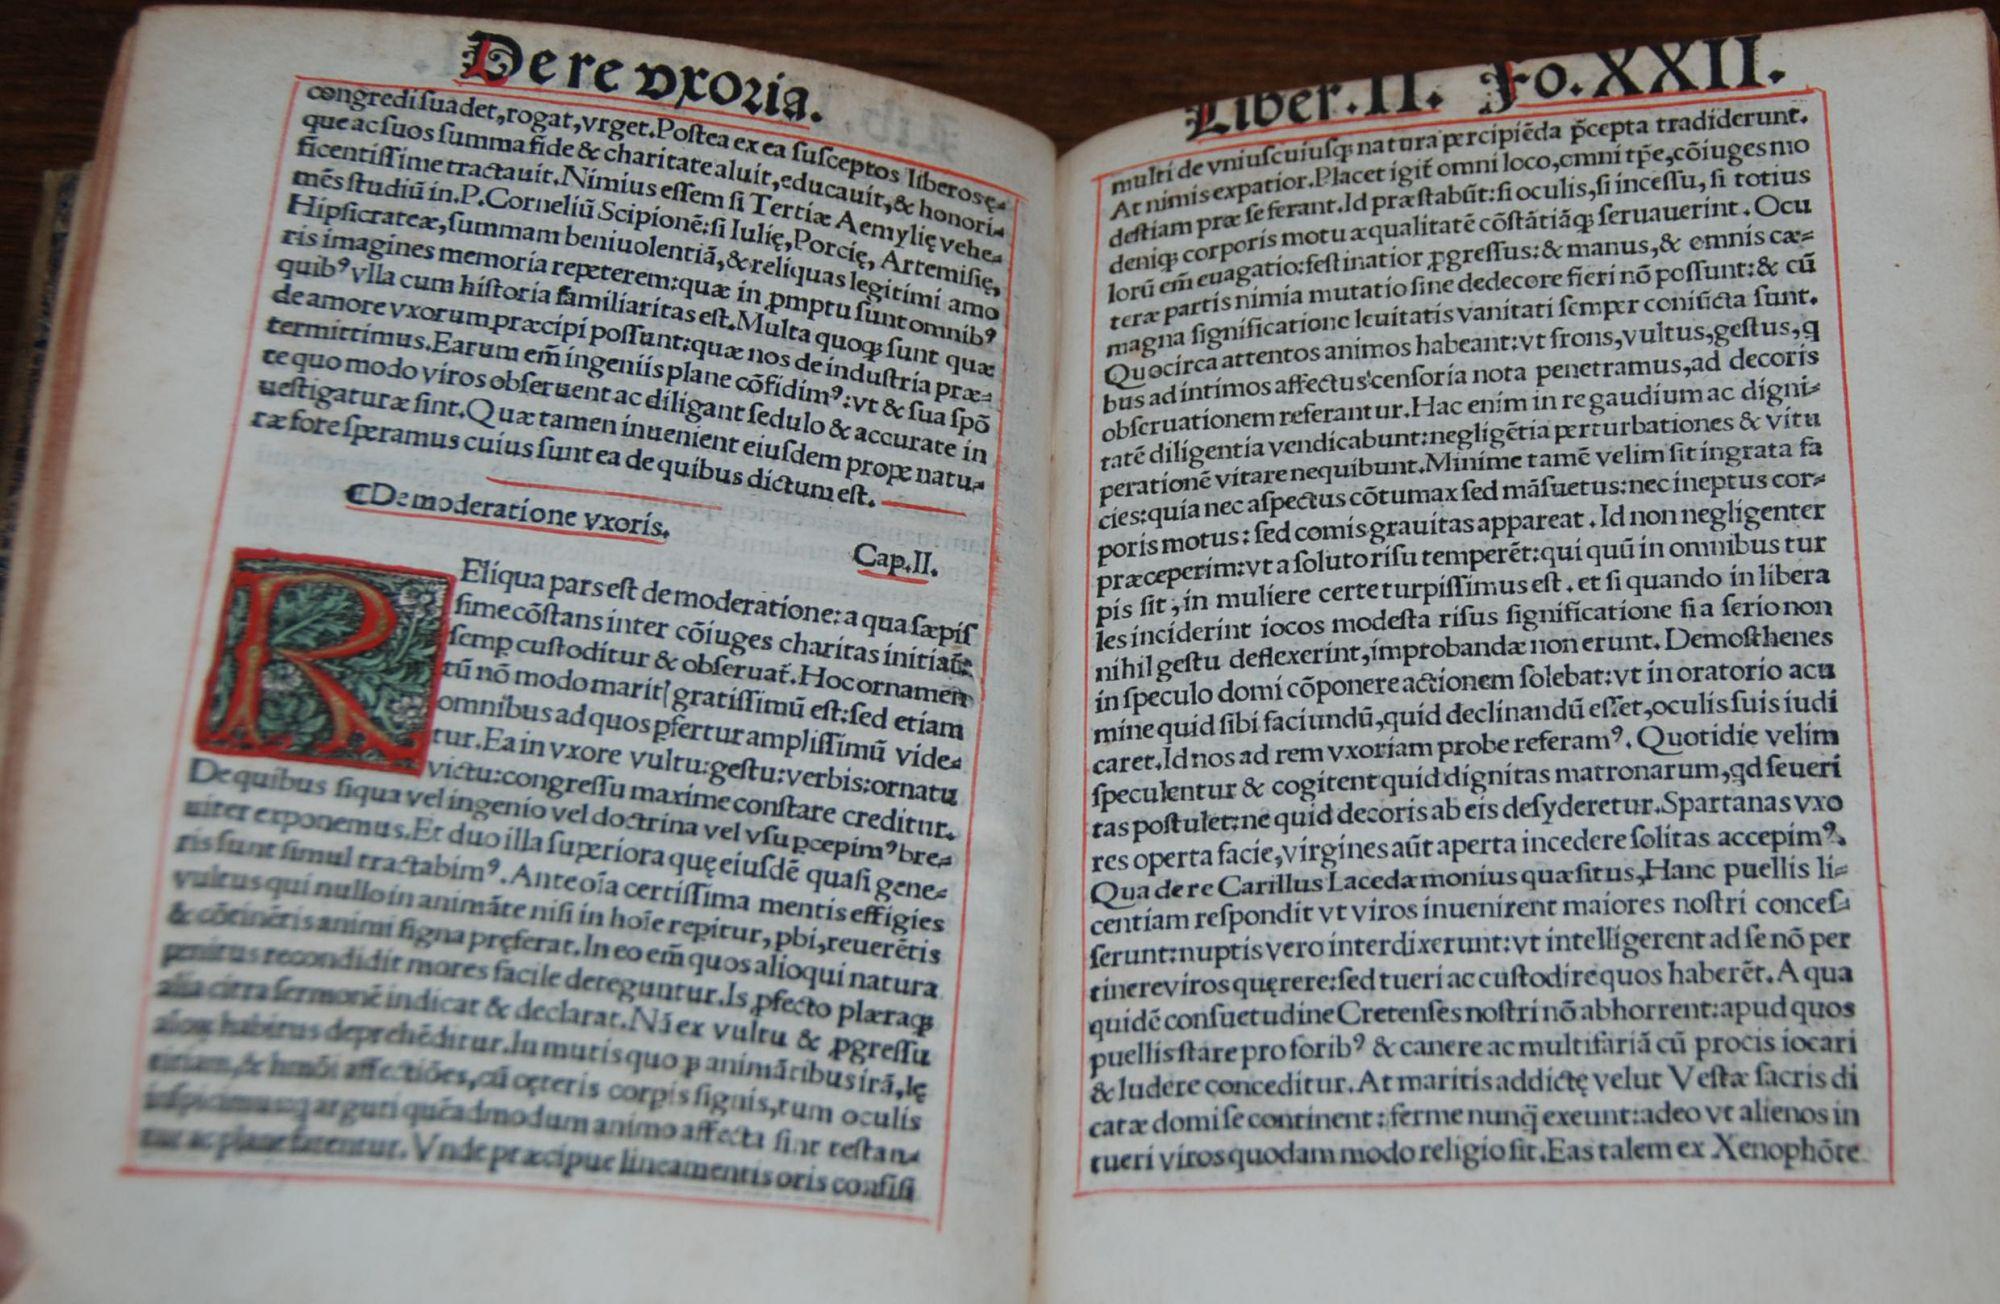 De re vxoria.
congredi ſuadet, rogat, vrget. Poſtea ex ea ſuſceptos liberos ę-
que ac ſuos ſumma fide & charitate aluit, educauit, & honori-
ficentiſſime tractauit. Nimius eſſem ſi Tertiæ Aemylię vehe-
mēs ſtudiū in. P. Corneliū Scipionē: ſi Iulię, Porcię, Artemiſię,
Hipſicrateæ, ſummam beniuolentiā, & reliquas legitimi amo
ris imagines memoria repeterem: quæ in ꝓmptu ſunt omnibꝰ
quibꝰ vlla cum hiſtoria familiaritas eſt. Multa quoqꝫ ſunt quæ
de amore vxorum præcipi poſſunt: quæ nos de induſtria præ-
termittimus. Earum em̄ ingeniis plane cōfidimꝰ: vt & ſua ſpō
te quo modo viros obſeruent ac diligant ſedulo & accurate in
ueſtigaturæ ſint. Quæ tamen inuenient eiuſdem prope natu-
ræ fore ſperamus cuius ſunt ea de quibus dictum eſt.
⁌De moderatione vxoris.
Cap. II.
REliqua pars eſt de moderatione: a qua ſæpiſ
ſime cōſtans inter cōiuges charitas initiat̄:
ſemꝑ cuſtoditur & obſeruat̄. Hoc ornamen
tū nō modo maritꝭ gratiſſimū eſt: ſed etiam
omnibus ad quos ꝑfertur ampliſſimū vide-
tur. Ea in vxore vultu: geſtu: verbis: ornatu
victu: congreſſu maxime conſtare creditur.
De quibus ſiqua vel ingenio vel doctrina vel vſu p̄cepimꝰ bre-
uiter exponemus. Et duo illa ſuperiora quę eiuſdē quaſi gene-
ris ſunt ſimul tractabimꝰ. Ante oīa certiſſima mentis effigies
vultus qui nullo in animāte niſi in hoīe repitur, ꝓbi, reuerētis
& cōtinētis animi ſigna pręferat. In eo em̄ quos alioqui natura
penitus recondidit mores facile deteguntur. Is ꝓfecto plæraqꝫ
alia citra ſermonē indicat & declarat. Nā ex vultu & ꝓgreſſu
habitus deprehēditur. In mutis quo ꝗ animātibus irā, lę
titiam, & hmōi affectiōes, cū cęteris corpis ſignis, tum oculis
inſpicimus arguri quēadmodum animo affecta ſint teſtan-
tur ac plane fatentur. Vnde præcipue lineamentis oris conſiſi
Liber. II. Fo. XXII.
multi de vniuſcuiuſqꝫ natura percipiēda p̄cepta tradiderunt.
At nimis expatior. Placet igit̄ omni loco, omni tp̄e, cōiuges mo
deſtiam præ ſe ferant. Id præſtabūt: ſi oculis, ſi inceſſu, ſi totius
deniqꝫ corporis motu æqualitatē cōſtātiāqꝫ ſeruauerint. Ocu
lorū em̄ euagatio: feſtinatior ꝓgreſſus: & manus, & omnis cæ-
teræ partis nimia mutatio ſine dedecore fieri nō poſſunt: & cū
magna ſignificatione leuitatis vanitati ſemper coniūcta ſunt.
Quocirca attentos animos habeant: vt frons, vultus, geſtus, q
bus ad intimos affectus cenſoria nota penetramus, ad decoris
obſeruationem referantur. Hac enim in re gaudium ac digni-
tatē diligentia vendicabunt: negligētia perturbationes & vitu
perationē vitare nequibunt. Minime tamē velim ſit ingrata fa
cies: quia nec aſpectus cōtumax ſed māſuetus: nec ineptus cor-
poris motus: ſed comis grauitas appareat. Id non negligenter
præceperim: vt a ſoluto riſu temperēt: qui quū in omnibus tur
pis ſit, in muliere certe turpiſſimus eſt. et ſi quando in libera
les inciderint iocos modeſta riſus ſignificatione ſi a ſerio non
nihil geſtu deflexerint, improbandæ non erunt. Demoſthenes
in ſpeculo domi cōponere actionem ſolebat: vt in oratorio acu
mine quid ſibi faciundū, quid declinandū eſſet, oculis ſuis iudi
caret. Id nos ad rem vxoriam probe referamꝰ. Quotidie velim
ſpeculentur & cogitent quid dignitas matronarum, qd ſeueri
tas poſtulet: ne quid decoris ab eis deſyderetur. Spartanas vxo
res operta facie, virgines aūt aperta incedere ſolitas accepimꝰ.
Qua de re Carillus Lacedæmonius quæſitus, Hanc puellis li-
centiam reſpondit vt viros inuenirent maiores noſtri conceſ-
ſerunt: nuptis vero interdixerunt: vt intelligerent ad ſe nō per
tinere viros quęrere: ſed tueri ac cuſtodire quos haberēt. A qua
quidē conſuetudine Cretenſes noſtri nō abhorrent: apud quos
puellis ſtare pro foribꝰ & canere ac multifariā cū procis iocari
& ludere conceditur. At maritis addictę velut Veſtæ ſacris di
catæ domi ſe continent: ferme nunq̄ exeunt: adeo vt alienos in
tueri viros quodam modo religio ſit. Eas talem ex Xenophōte